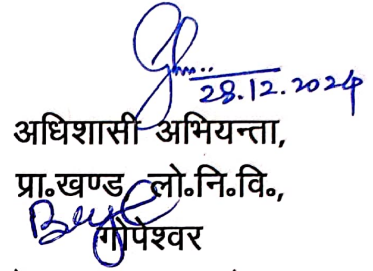 28.12.2024
अधिशासी अभियन्ता,
प्रा॰खण्ड, लो॰नि॰वि॰,
गोपेश्वर